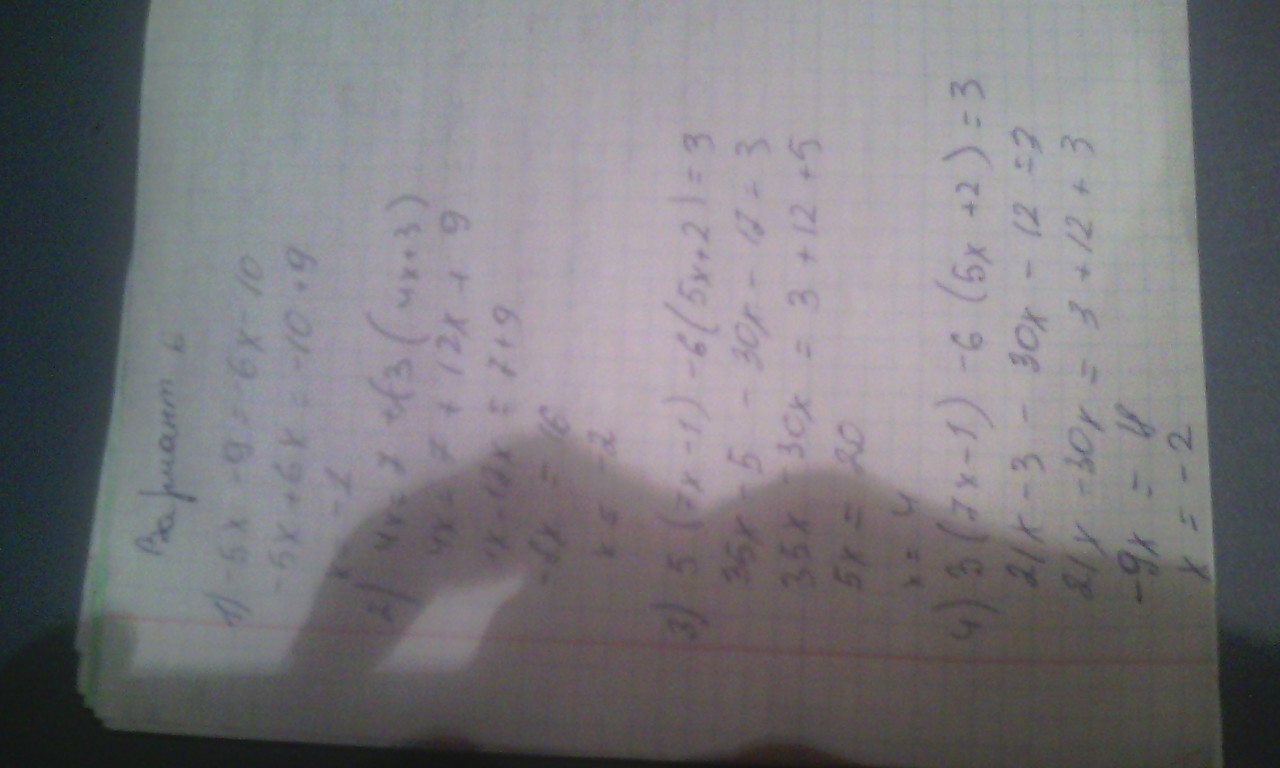 Вариант 6
1) -5x - 9 = -6x - 10
-5x + 6x = -10 + 9
x = -1
2) 4x = 7 + 3(4x+3)
4x = 7 + 12x + 9
4x - 12x = 7+9
-8x = 16
x = -2
3) 5(7x-1) - 6(5x+2) = 3
35x - 5 - 30x - 12 = 3
35x - 30x = 3 + 12 + 5
5x = 20
x = 4
4) 3(7x-1) - 6(5x+2) = 3
21x - 3 - 30x - 12 = 3
21x - 30x = 3 + 12 + 3
-9x = 18
x = -2